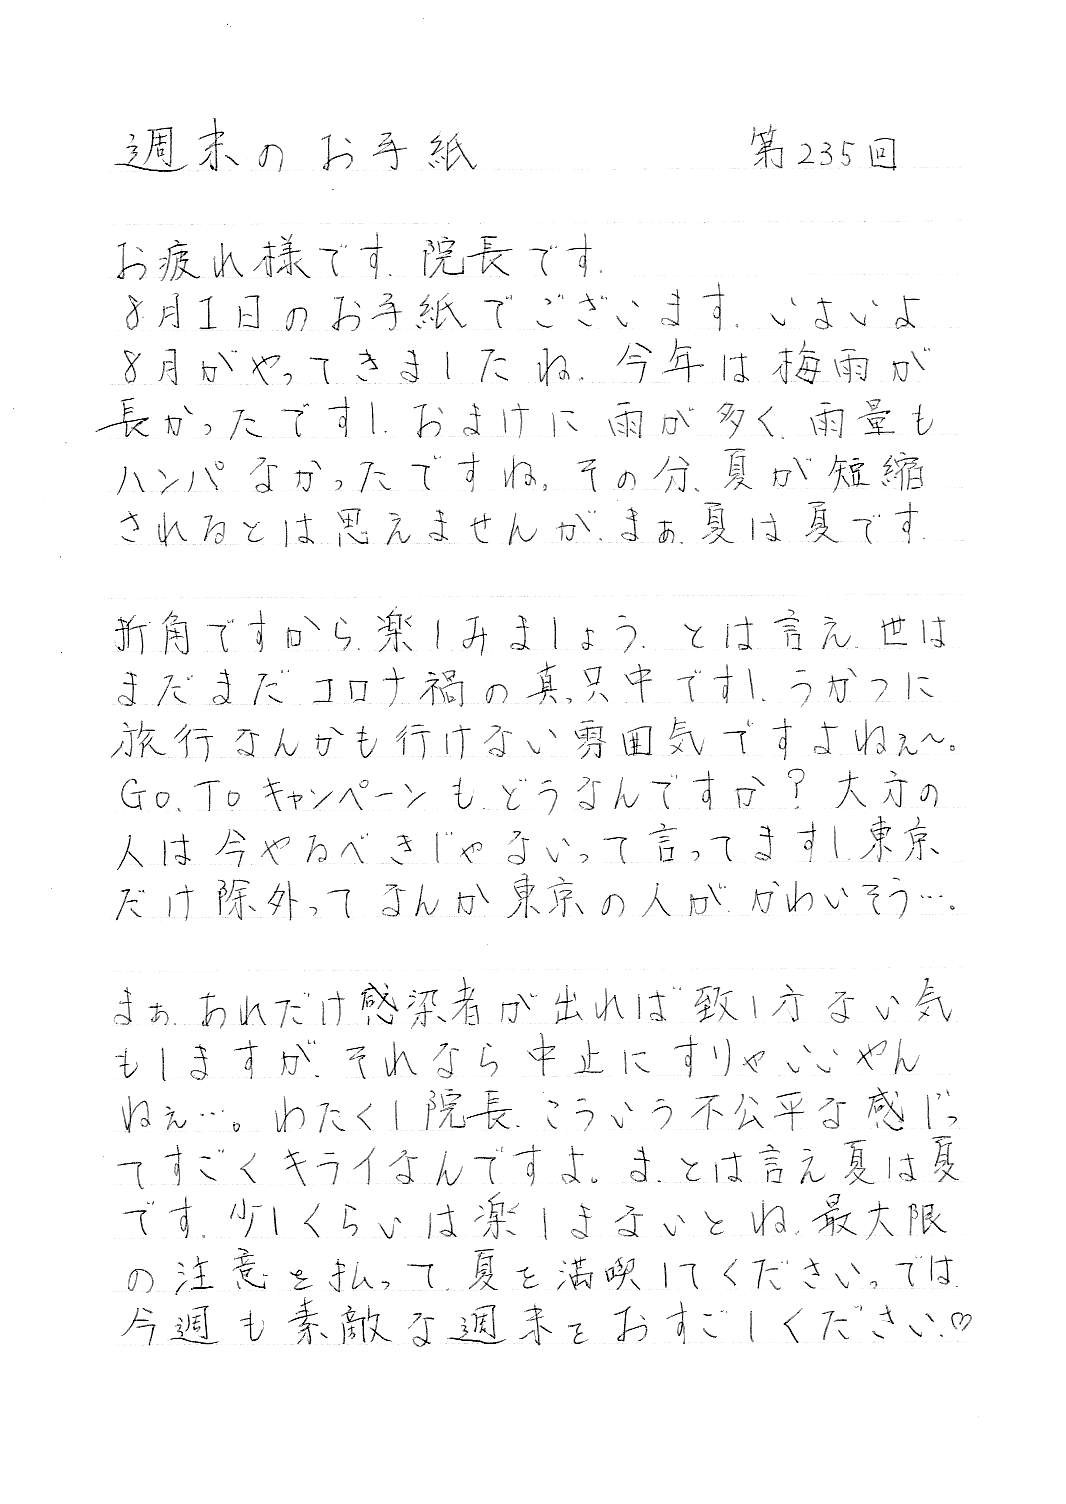 週末のお手紙 第235回
お疲れ様です。院長です。
8月1日のお手紙でございます。いよいよ
8月がやってきましたね。今年は梅雨が
長かったですし、おまけに雨が多く、雨量も
ハンパなかったですね。その分、夏が短縮
されるとは思えませんが、まぁ、夏は夏です。
折角ですから、楽しみましょう。とは言え、世は
まだまだコロナ禍の真っ只中ですし、うかつに
旅行なんかも行けない雰囲気ですよねぇ〜。
Go.Toキャンペーンも、どうなんですか?大方の
人は今やるべきじゃないって言ってますし、東京
だけ除外ってなんか東京の人が、かわいそう…。
まぁ、あれだけ感染者が出れば致し方ない気
もしますが、それなら中止にすりゃいいやん
ねぇ…。わたくし院長、こういう不公平な感じっ
てすごくキライなんですよ。ま、とは言え夏は夏
です。少しくらいは楽しまないとね。最大限
の注意を払って、夏を満喫してくださいっ。では、
今週も素敵な週末をおすごしください。♡